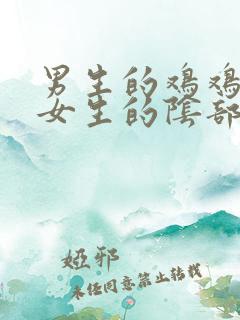 男生的鸡鸡
女生的陰部
婭邪
未经同意禁止转载